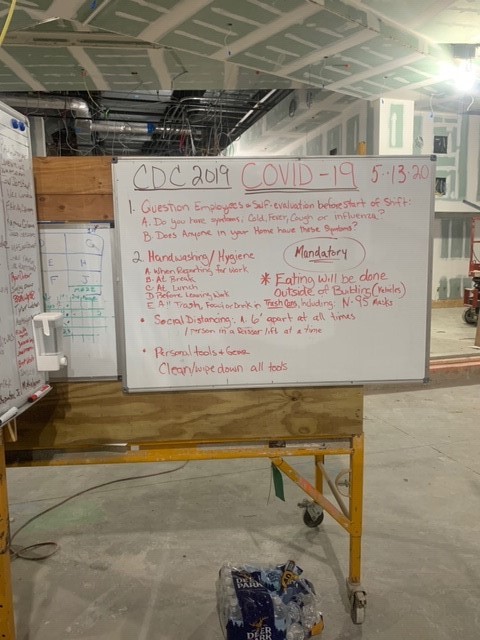 CDC 2019 COVID-19 5·13·20
1. Question Employees & Self-evaluation before start of Shift:
A. Do you have symtoms, Cold, Fever, Cough or Influenza?
B. Does Anyone in your Home have these Symtoms?
2. Handwashing / Hygiene
Mandatory
A. When Reporting for Work
B. At Break
C. At Lunch
D. Before Leaving Work
E. All Trash, Food or drink in Trash Cans, Including: N-95 Masks
* Eating will be done
outside of Building (Vehicles)
• Social Distancing: A. 6' apart at all times
1 person in a scissor lift at a time
• Personal tools & Gear
Clean/wipe down all tools
DEER PARK
DEER PARK